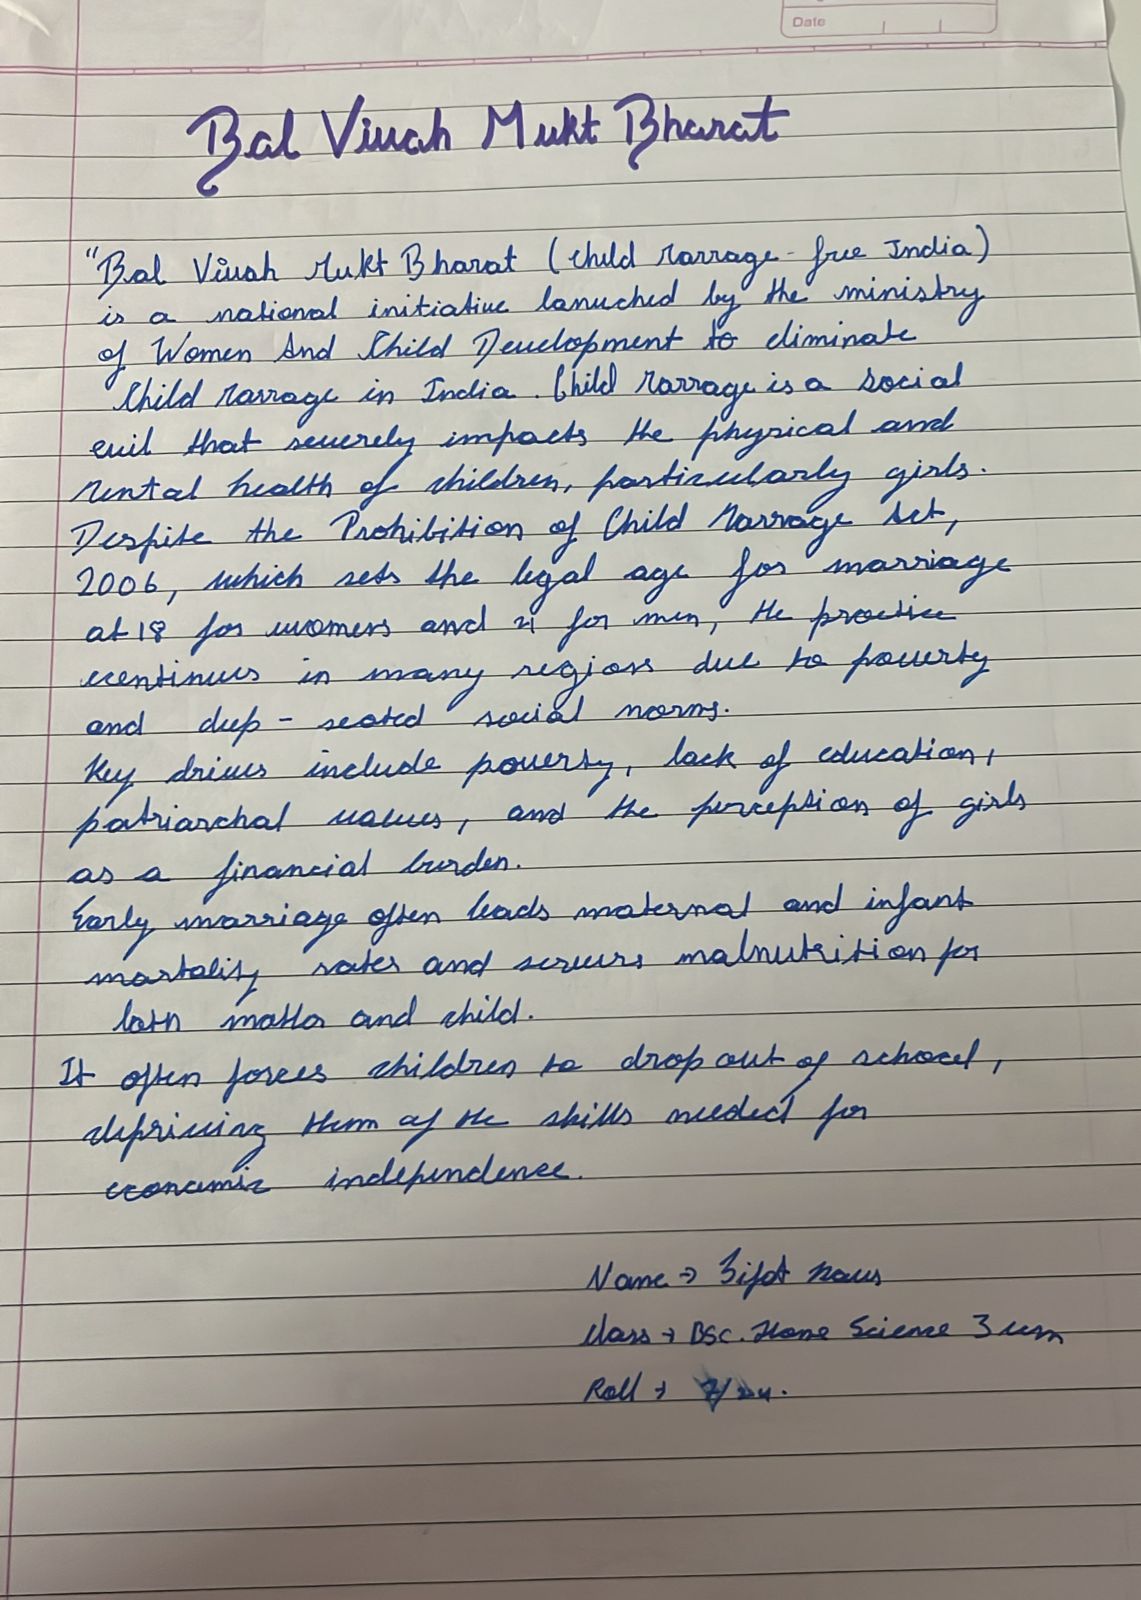 Date
Bal Vivah Mukt Bharat
"Bal Vivah Mukt Bharat (Child Marrage-free India)
is a national initiative lanuched by the ministry
of Women And Child Development to eliminate
Child Marrage in India. Child Marrage is a social
evil that severely impacts the physical and
mental health of children, particularly girls.
Despite the Prohibition of Child Marrage Act,
2006, which sets the legal age for marriage
at 18 for womens and 21 for men, the practice
continues in many regions due to poverty
and deep-seated social norms.
Key drives include poverty, lack of education,
patriarchal values, and the perception of girls
as a financial burden.
Early marriage often leads maternal and infant
mortality rates and malnutrition for
both and child.
It often forces children to drop out of school,
depriving them of the skills needed for
economic independence.
Name →
Class → BSc. Home Science 3 sem
Roll →